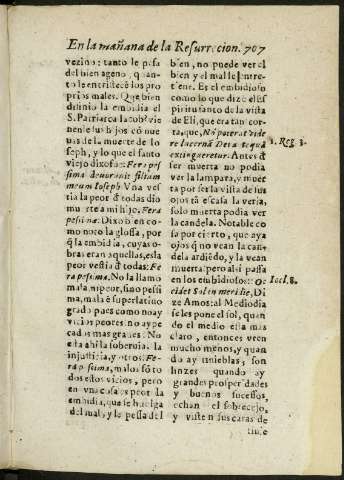 En la mañana de la Resurreccion. 707
vezino: tanto le pesa
del bien ageno, quan-
to le entristecē los pro
prios males. Que bien
difinio la embidia el
S. Patriarca Iacob! vie
nenle sus hijos cō nue
vas de la muerte de Io
seph, y lo que el santo
viejo dixo fue: Fera pes
sima devoravit filium
meum Ioseph. Vna ves
tia la peor d todas dio
muerte a mi hijo. Fera
pessima: Dixo bien co-
mo noto la glossa, por
q̄ la embidia, cuyas o-
bras eran aquellas, es la
peor vestia d todas: Fe
ra pessima. No la llamo
mala ni peor, sino pessi
ma, mala ē superlativo
grado pues como no ay
vicios peores no ay pe
cados mas grandes. No
está ahi la sobervia, la
injusticia, y otros: Fe-
ra pessima, malos sō to
dos estos vicios, pero
en una cosa es peor la
embidia, que se huelga
del mal, y le pessa del
bien, no puede ver el
bien y el mal le entre-
tiene. Es el embidioso
como lo que dize el Es
piritu santo de la vista
de Eli, que era tan cor-
ta, que, Nō poterat vide
re lucernā Dei ātequā
extingueretur. Antes d
ser muerta no podia
ver la lampara, y muer
ta por ser la vista de sus
ojos tā escasa la veria,
solo muerta podia ver
la candela. Notable co
sa por cierto, que aya
ojos q̄ no vean la can-
dela ardiēdo, y la vean
muerta: pero assi passa
en los embidiosos: Oc
cidet Sol in meridie, Di
ze Amos: al Mediodia
se les pone el sol, quan
do el medio esta mas
claro, entonces veen
mucho menos, y quan
do ay tinieblas, son
linzes quando ay
grandes prosperidades
y buenos sucessos,
echan el sobrecejo,
y visten sus caras de
1. Reg. 3.
Ioel. 8.